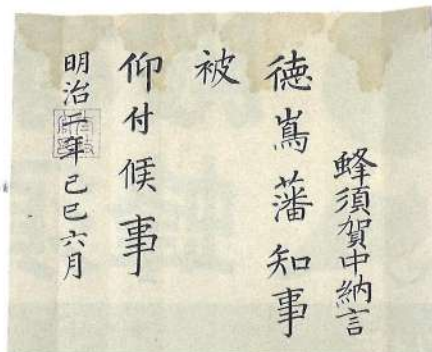 蜂須賀中納言
徳嶌藩知事
被
仰付候事
明治二年己巳六月